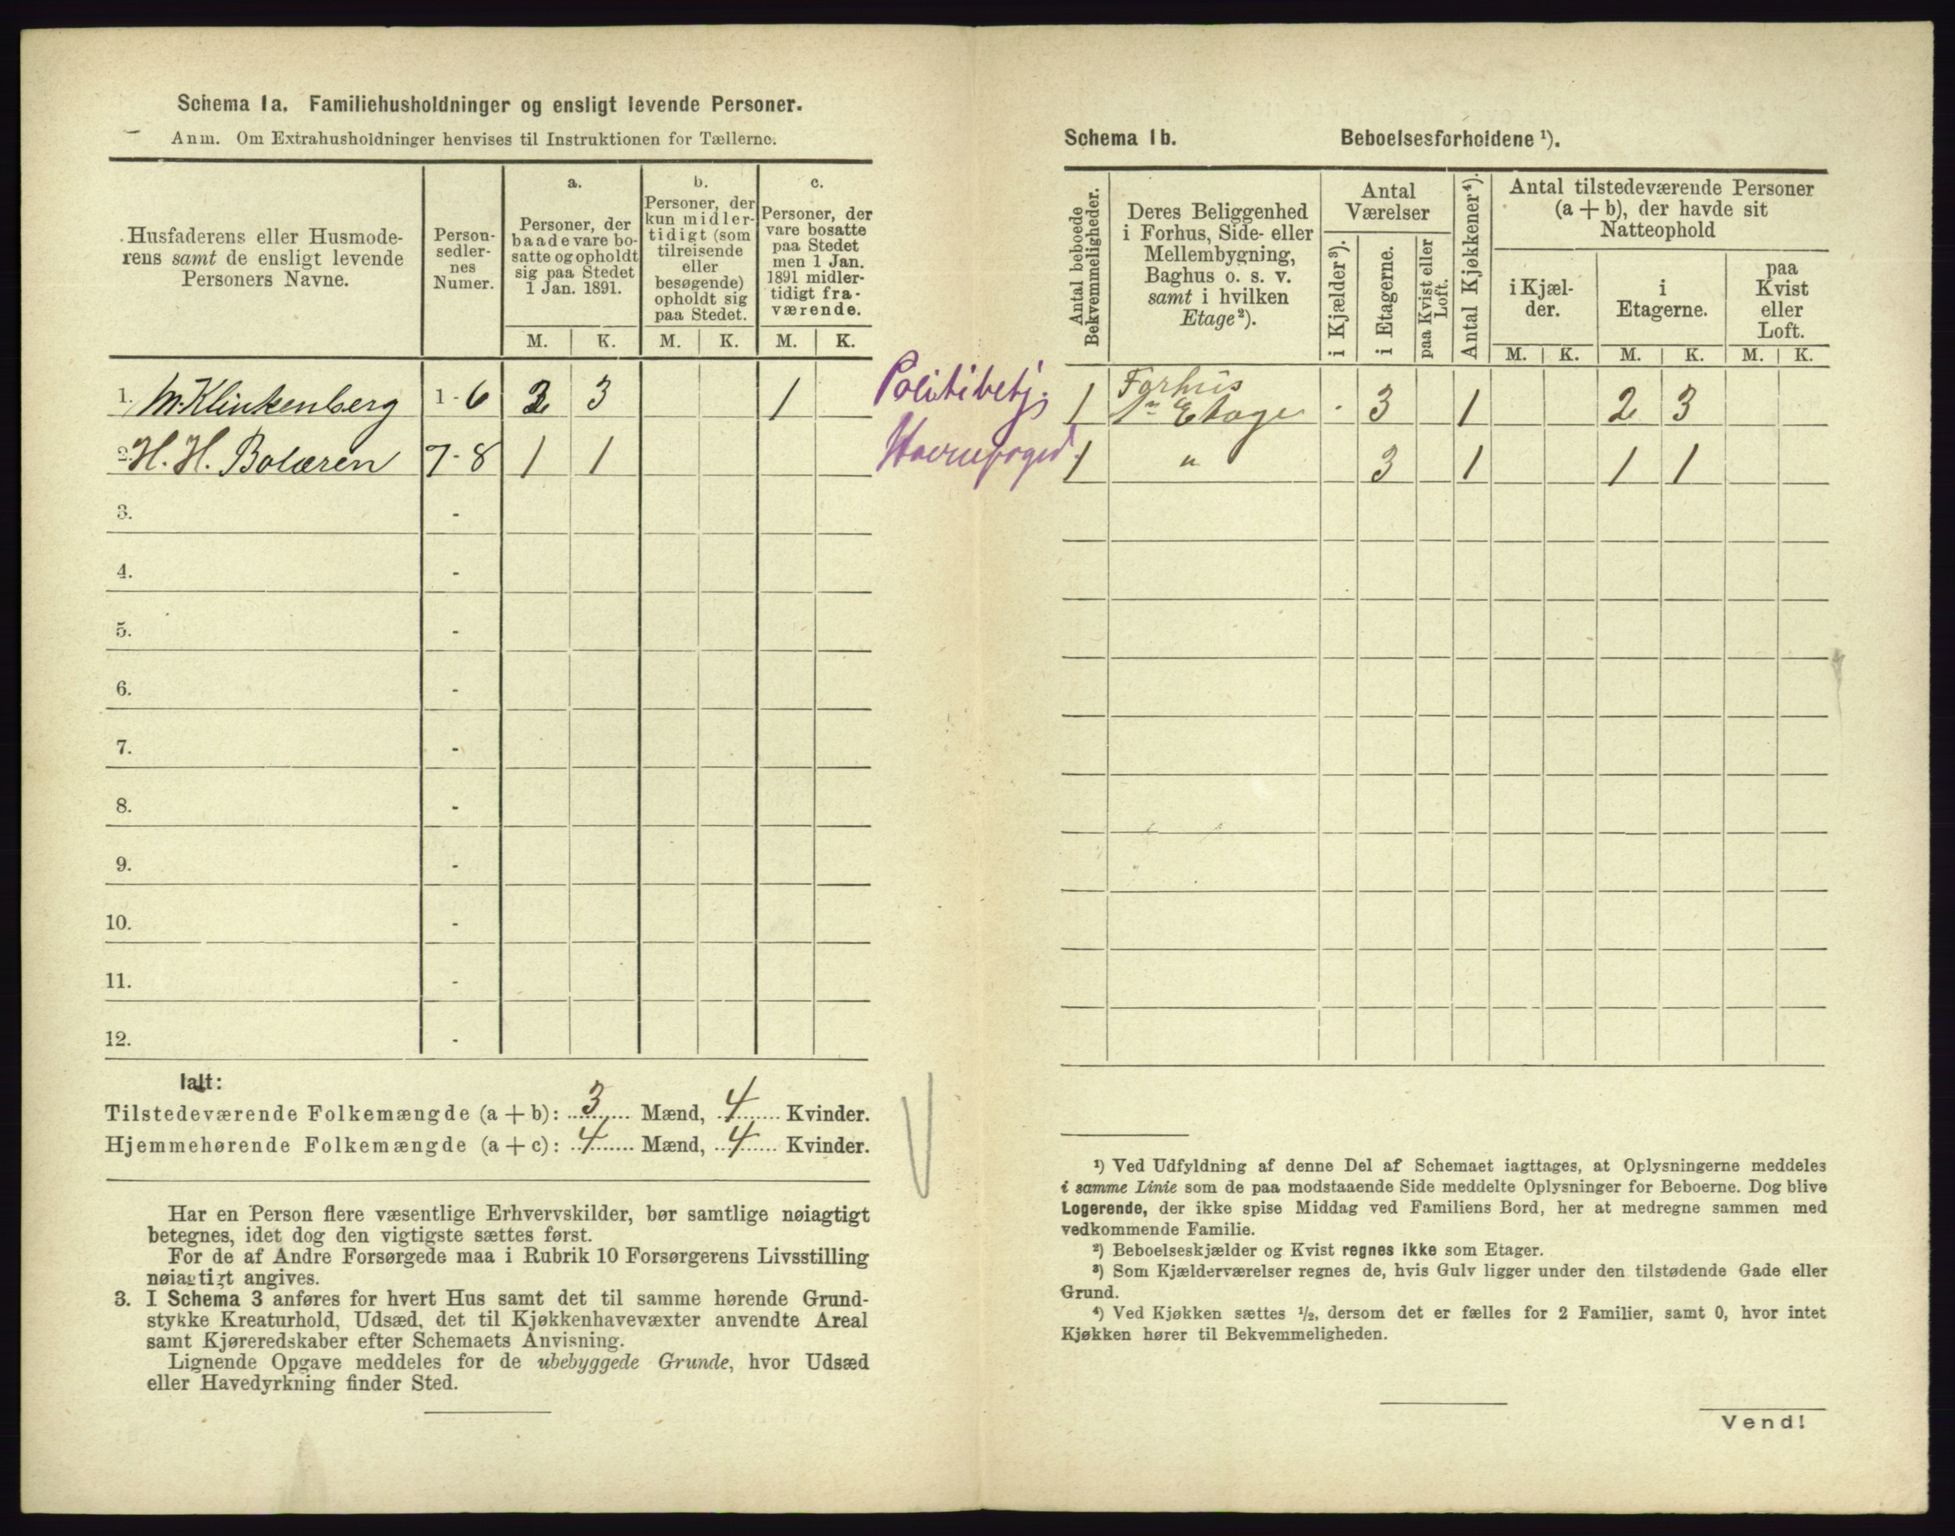 Schema 1a. Familiehusholdninger og ensligt levende Personer.
Anm. Om Extrahusholdninger henvises til Instruktionen for Tællerne.
Husfaderens eller Husmoderens samt de ensligt levende Personers Navne.
Husfaderens eller Husmode-
rens samt de ensligt levende
Personers Navne.
Person-
sedler-
nes
Numer.
a.
Personer, der
baade vare bo-
satte og opholdt
sig paa Stedet
1 Jan. 1891.
b.
Personer, der
kun midler-
tidigt (som
tilreisende
eller
besøgende)
opholdt sig
paa Stedet.
c.
Personer, der
vare bosatte
paa Stedet
men 1 Jan.
1891 midler-
tidigt fra-
værende.
M. K. M. K. M. K.
1. M. Klinkenberg 1-6 2 3 1
2. H. H. Bolæren 7-8 1 1
3. -
4. -
5. -
6. -
7. -
8. -
9. -
10. -
11. -
12. -
Ialt:
Tilstedeværende Folkemængde (a + b): 3 Mænd, 4 Kvinder.
Hjemmehørende Folkemængde (a + c): 4 Mænd, 4 Kvinder.
Har en Person flere væsentlige Erhvervskilder, bør samtlige nøiagtigt
betegnes, idet dog den vigtigste sættes først.
For de af Andre Forsørgede maa i Rubrik 10 Forsørgerens Livsstilling
nøiagtigt angives.
3. I Schema 3 anføres for hvert Hus samt det til samme hørende Grund-
stykke Kreaturhold, Udsæd, det til Kjøkkenhavevæxter anvendte Areal
samt Kjøreredskaber efter Schemaets Anvisning.
Lignende Opgave meddeles for de ubebyggede Grunde, hvor Udsæd
eller Havedyrkning finder Sted.
Politibetj.
Havnefoged.
Schema 1b. Beboelsesforholdene ¹).
Antal beboede
Bekvemmeligheder.
Deres Beliggenhed
i Forhus, Side- eller
Mellembygning,
Baghus o. s. v.
samt i hvilken
Etage²).
Antal
Værelser
i Kjælder³).
i Etagerne.
paa Kvist eller
Loft.
Antal Kjøkkener⁴).
Antal tilstedeværende Personer
(a + b), der havde sit
Natteophold
i Kjæl-
der.
i
Etagerne.
paa
Kvist
eller
Loft.
M. K. M. K. M. K.
1 Forhus
1ⁿ Etage . 3 1 2 3
1 " 3 1 1 1
¹) Ved Udfyldning af denne Del af Schemaet iagttages, at Oplysningerne meddeles
i samme Linie som de paa modstaaende Side meddelte Oplysninger for Beboerne. Dog blive
Logerende, der ikke spise Middag ved Familiens Bord, her at medregne sammen med
vedkommende Familie.
²) Beboelseskjælder og Kvist regnes ikke som Etager.
³) Som Kjælderværelser regnes de, hvis Gulv ligger under den tilstødende Gade eller
Grund.
⁴) Ved Kjøkken sættes ½, dersom det er fælles for 2 Familier, samt 0, hvor intet
Kjøkken hører til Bekvemmeligheden.
Vend!